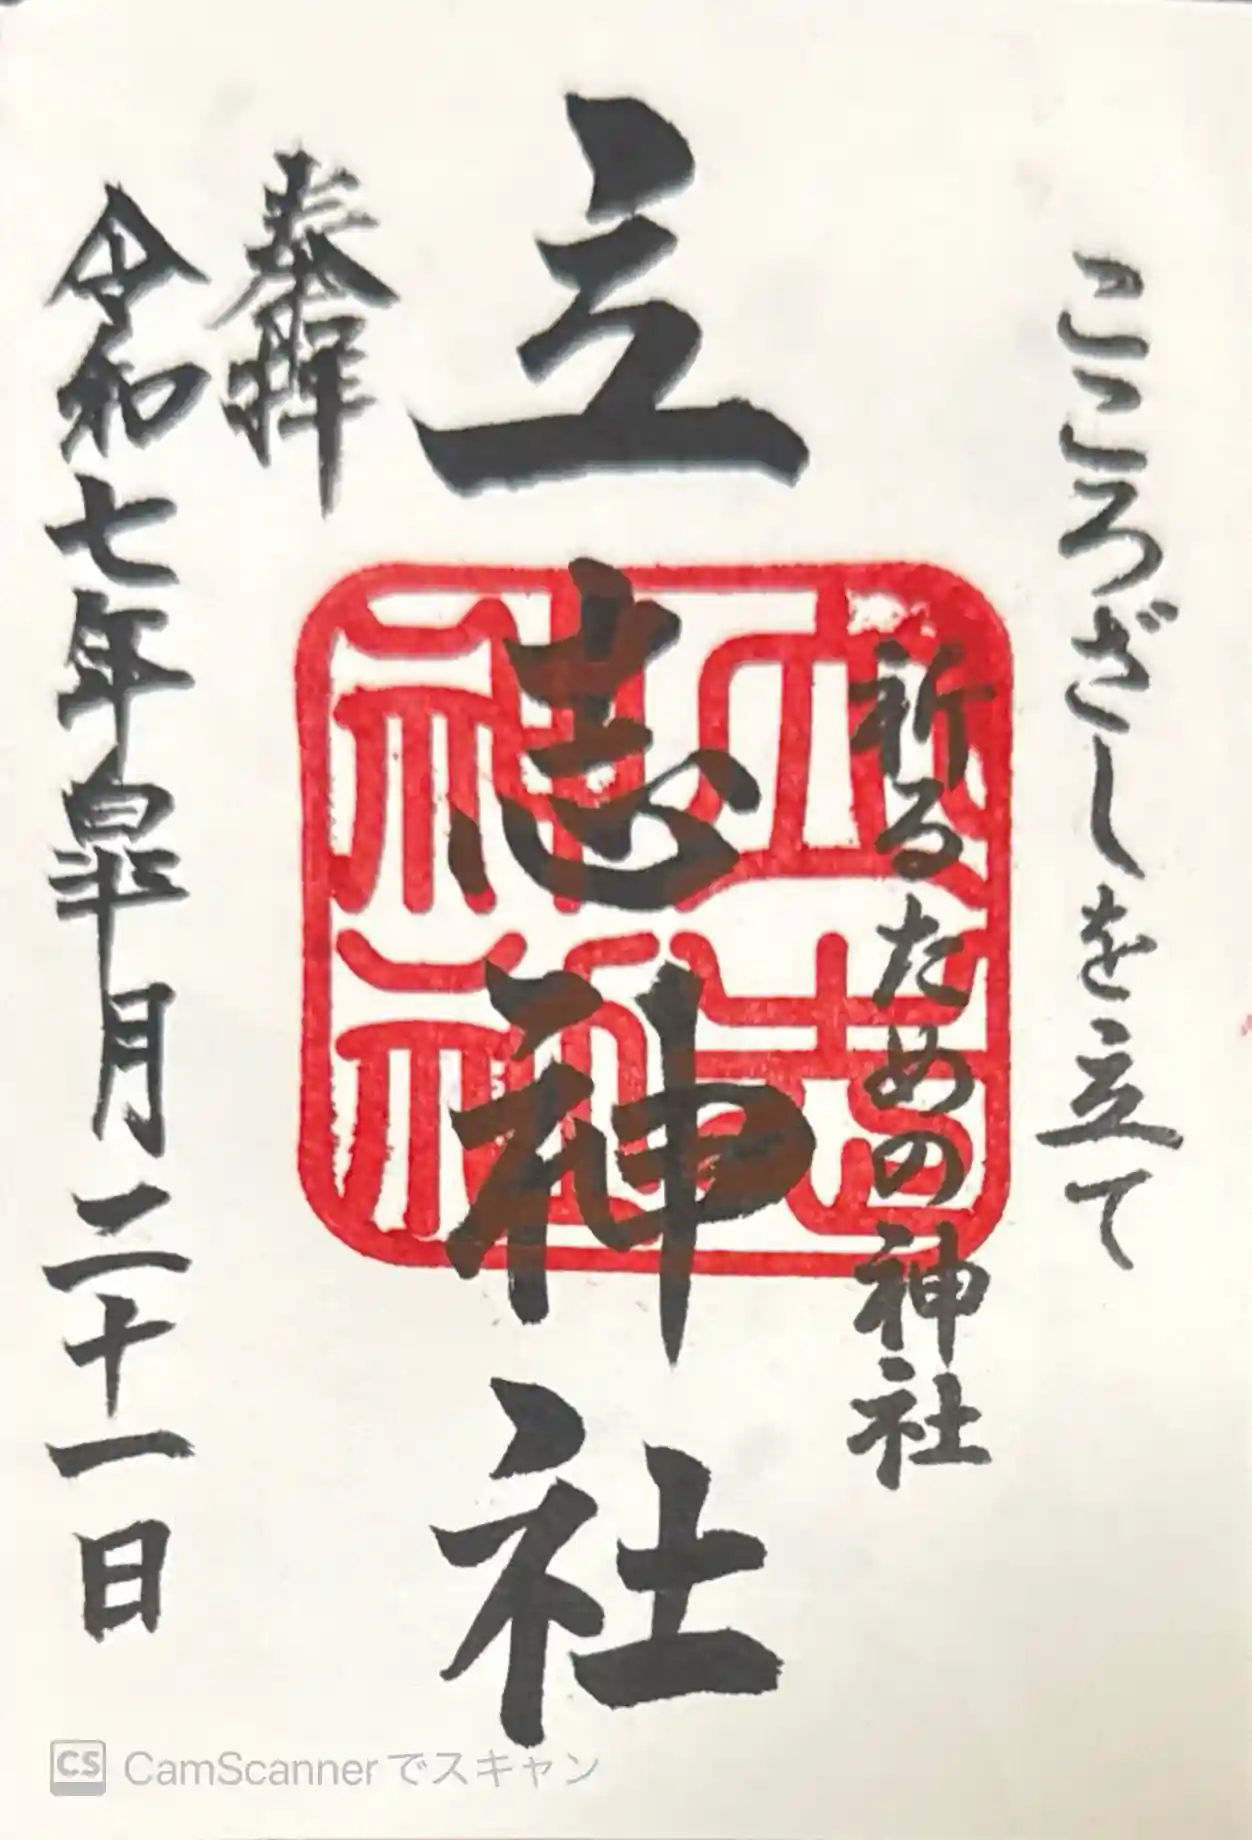 こころざしを立て
祈るための神社
立志神社
奉拝
令和七年皐月二十一日
立志神社
CS CamScannerでスキャン